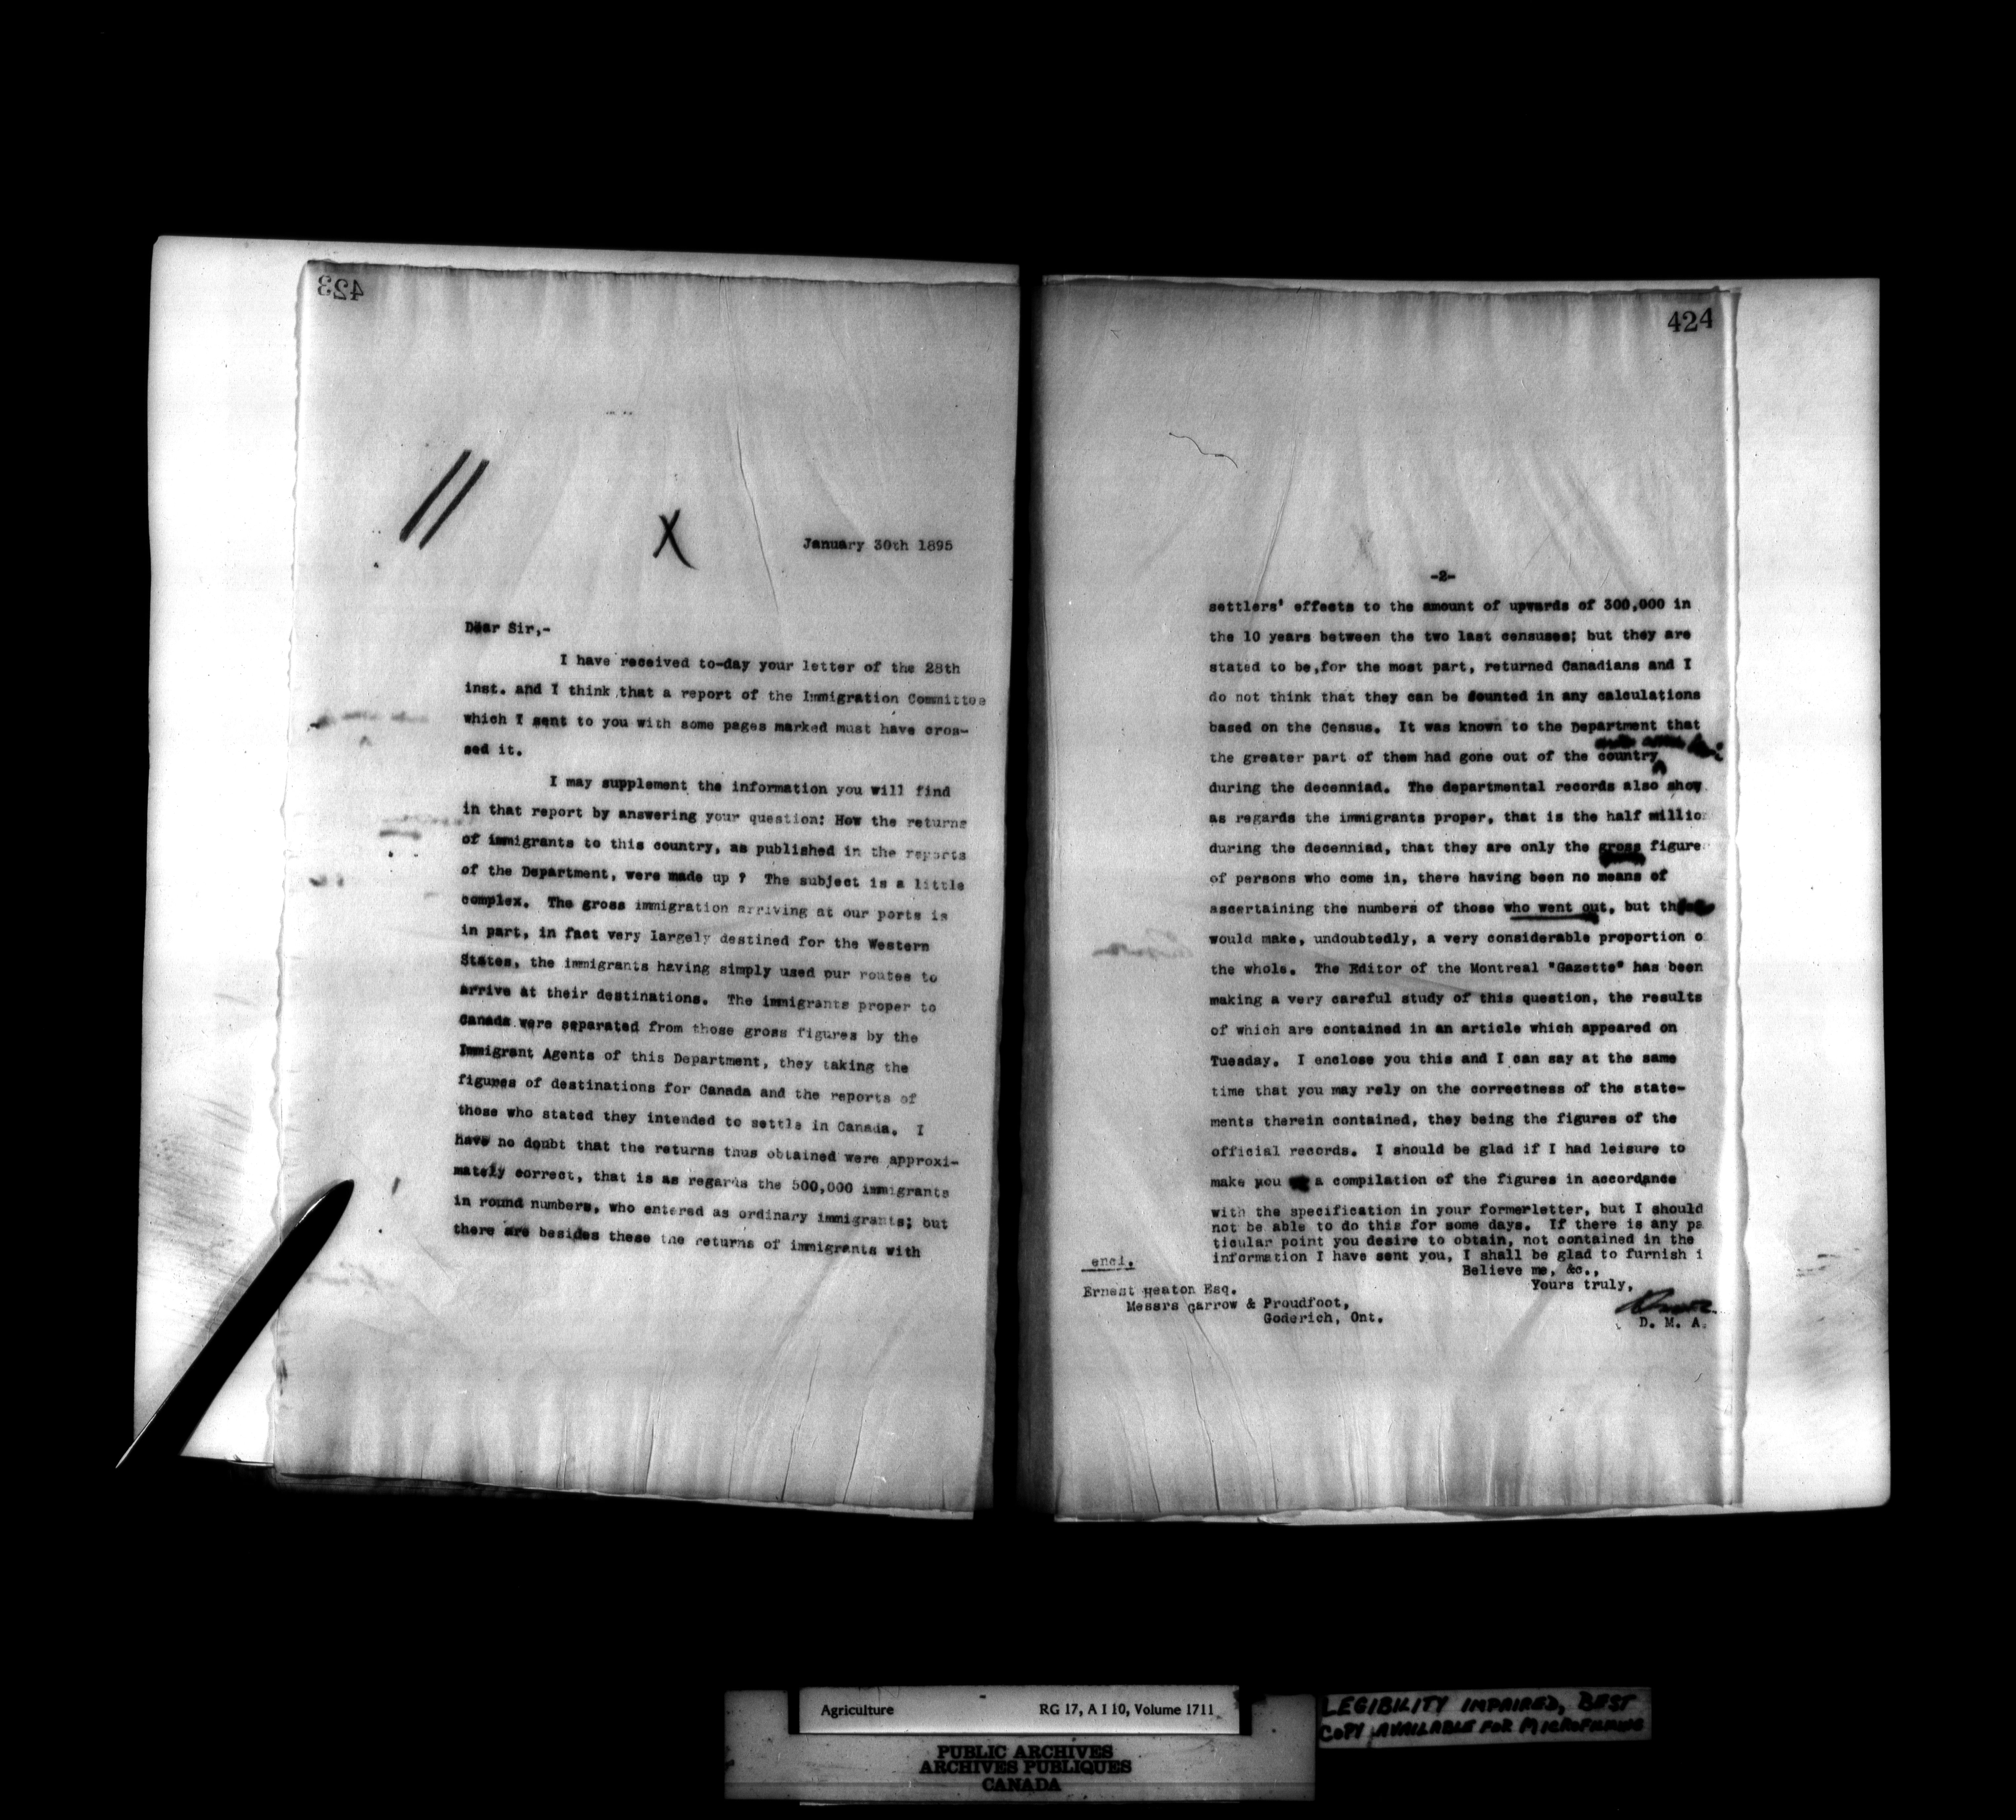 423
January 30th 1895
Dear Sir,-
I have received to-day your letter of the 28th
inst. and I think that a report of the Immigration Committee
which I sent to you with some pages marked must have cros-
sed it.
I may supplement the information you will find
in that report by answering your question: How the returns
of immigrants to this country, as published in the reports
of the Department, were made up ? The subject is a little
complex. The gross immigration arriving at our ports is
in part, in fact very largely destined for the Western
States, the immigrants having simply used our routes to
arrive at their destinations. The immigrants proper to
Canada were separated from those gross figures by the
Immigrant Agents of this Department, they taking the
figures of destinations for Canada and the reports of
those who stated they intended to settle in Canada. I
have no doubt that the returns thus obtained were approxi-
mately correct, that is as regards the 500,000 immigrants
in round numbers, who entered as ordinary immigrants; but
there are besides these the returns of immigrants with
424
-2-
settlers' effects to the amount of upwards of 300,000 in
the 10 years between the two last censuses; but they are
stated to be,for the most part, returned Canadians and I
do not think that they can be counted in any calculations
based on the Census. It was known to the Department that
the greater part of them had gone out of the country
during the decenniad. The departmental records also show
as regards the immigrants proper, that is the half millio
during the decenniad, that they are only the gross figure
of persons who come in, there having been no means of
ascertaining the numbers of those who went out, but
would make, undoubtedly, a very considerable proportion o
the whole. The Editor of the Montreal "Gazette" has been
making a very careful study of this question, the results
of which are contained in an article which appeared on
Tuesday. I enclose you this and I can say at the same
time that you may rely on the correctness of the state-
ments therein contained, they being the figures of the
official records. I should be glad if I had leisure to
make you a compilation of the figures in accordance
with the specification in your formerletter, but I should
not be able to do this for some days. If there is any pa
ticular point you desire to obtain, not contained in the
information I have sent you, I shall be glad to furnish i
Believe me, &c.,
Yours truly,
D. M. A.
encl.
Ernest Heaton Esq.
Messrs Garrow & Proudfoot,
Goderich, Ont.
Agriculture RG 17, A I 10, Volume 1711
PUBLIC ARCHIVES
ARCHIVES PUBLIQUES
CANADA
LEGIBILITY IMPAIRED, BEST
COPY AVAILABLE FOR MICROFILMING